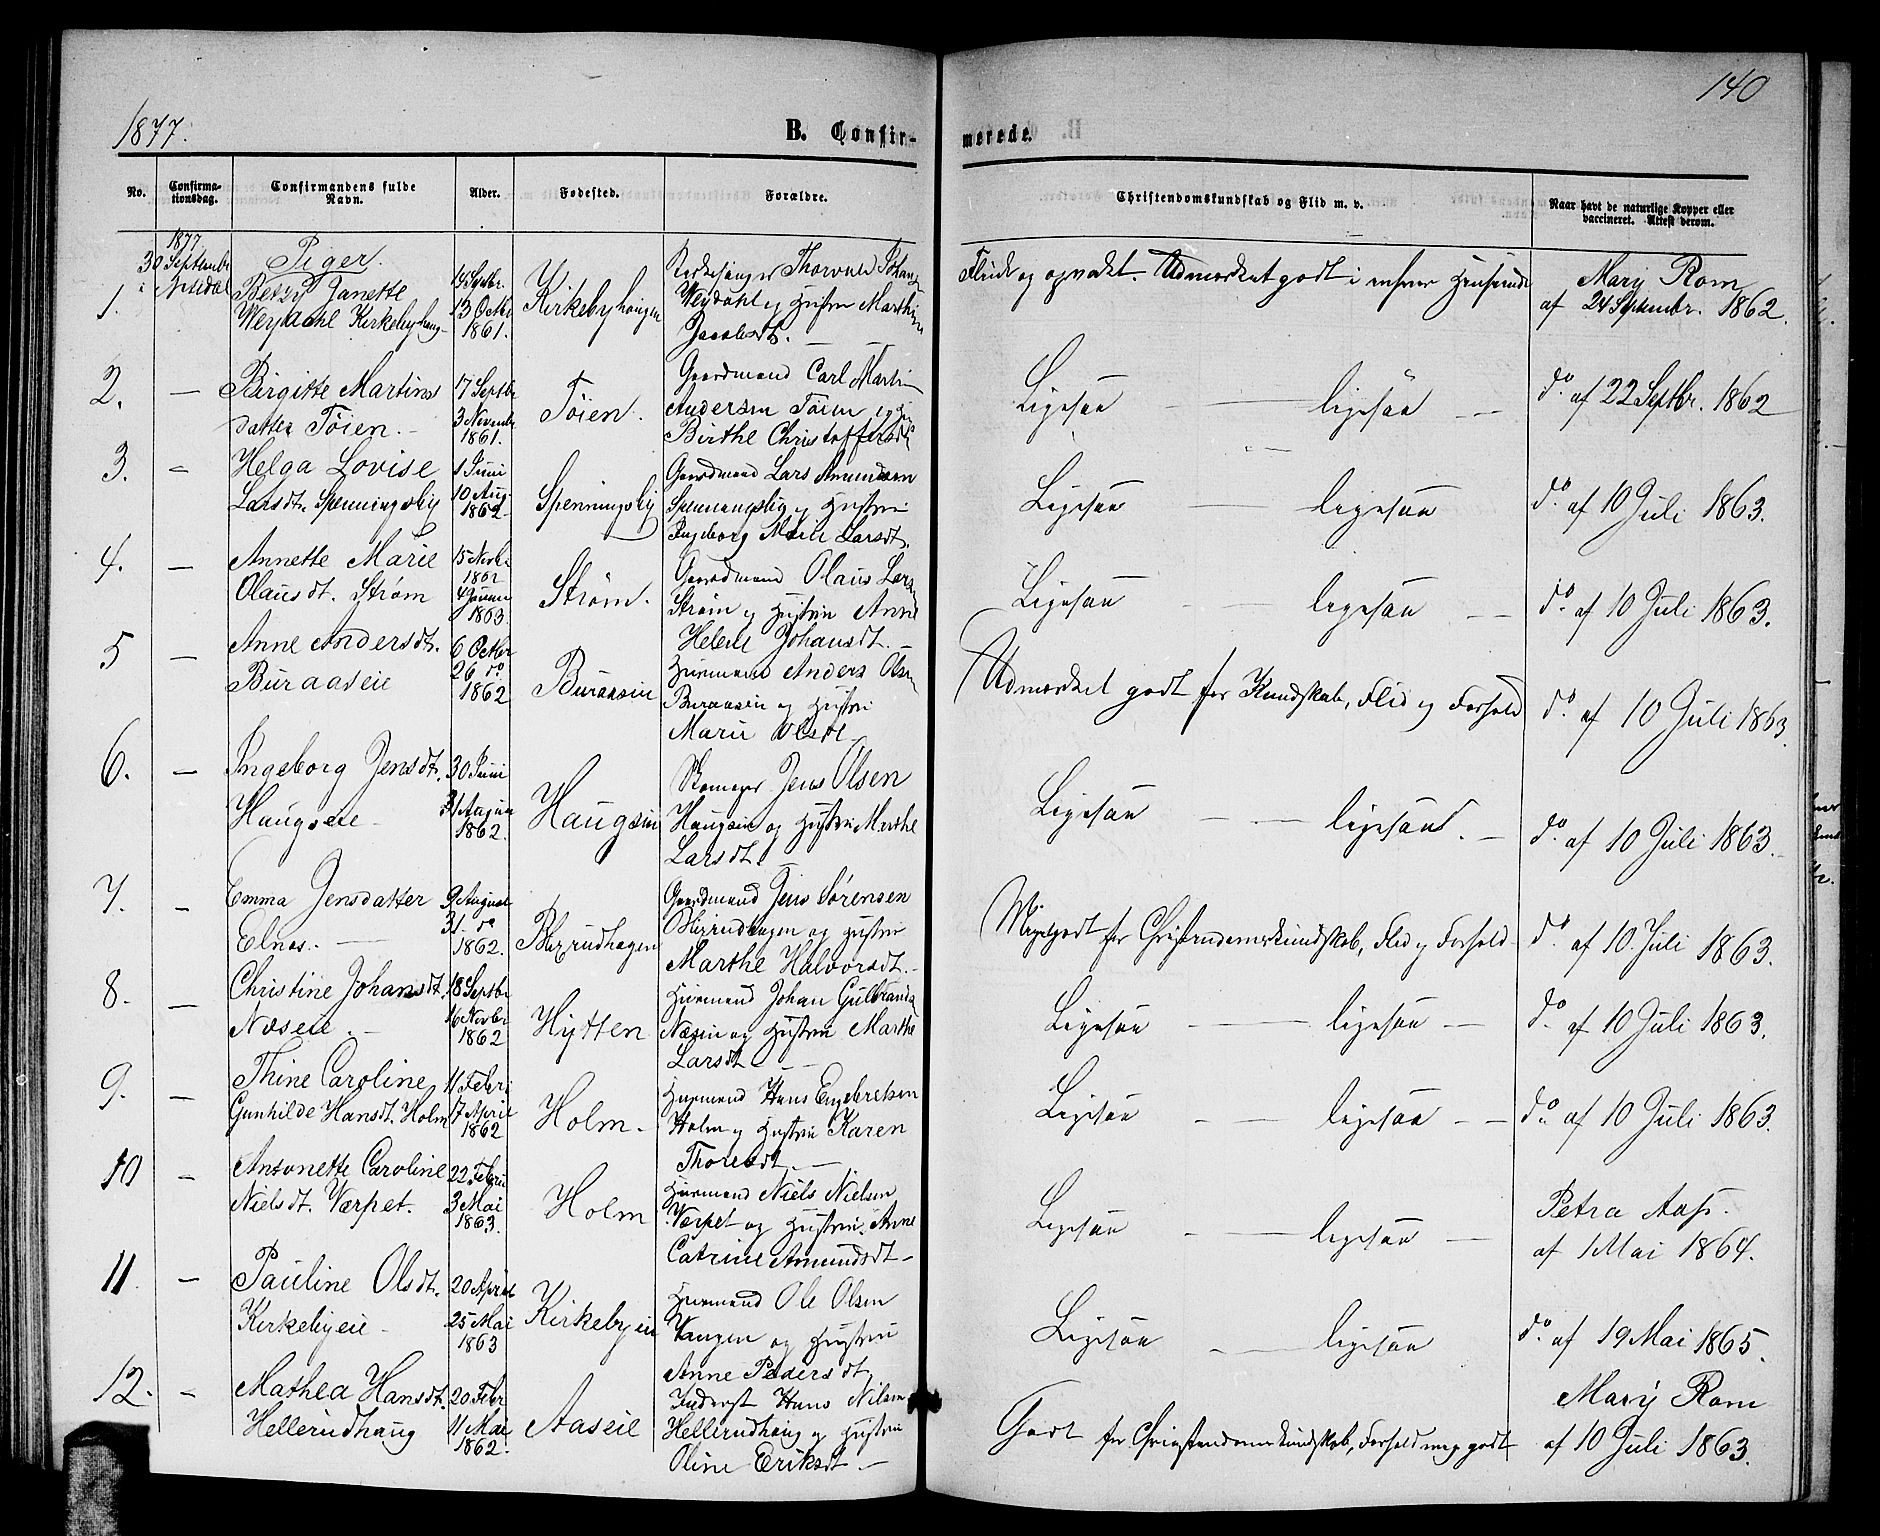 140
1877.
B. Confirmerede.
No.
Confirmationsdag.
Confirmandens fulde Navn.
Alder.
Fødested.
Forældre.
Christendomskundskab og Flid m. v.
Naar havt de naturlige Kopper eller vaccineret. Attest derom.
1877
30 September
Piger.
1. Betzy Janette
Weydahl Kirkebyhaug
13 Octbr
1861.
Kirkebyhaugen
Kirkesanger Thorvald Johan
Weydahl og Hustru Marthine
Jacobsdt.
Flink og opvakt. Udmærket godt i enhver Henseende
Mary Rom
af 24 Septembr. 1862.
2. — Birgitte Martins
datter Töien.
17 Septbr
3 Novembr
1861.
Töien.
Gaardmand Carl Martin
Andersen Töien og Hu
Birthe Christoffersdt
Ligesaa — ligesaa —
do. af 22 Septbr. 1862
3. — Helga Lovise
Larsdt. Spenningsby
1 Juni
10 Aug.
1862
Spenningsby
Gaardmand Lars Amundsen
Spenningsby og Hustru
Ingeborg Marie Larsdt.
Ligesaa — ligesaa
do. af 10 Juli 1863.
4. — Annette Marie
Olausdt. Strøm
15 Novbr
1862
4 Januar
1863.
Strøm.
Gaardmand Olaus Lars
Strøm og Hustru Anne
Helene Johansdt.
Ligesaa — ligesaa —
do. af 10 Juli 1863.
5 — Anne Andersdt.
Buraaseie
6 Octbr
26 do
1862
Buraaseie
Huusmand Anders Olsen
Buraaseie og Hustru
Marie Olsdt.
Udmærket godt for Kundskab, Flid og Forhold
do. af 10 Juli 1863.
6. — Ingeborg Jensdt.
Haugseie
30 Juni
31 August
1862.
Haugseie
Skomager Jens Olsen
Haugseie og Hustru Marthe
Larsdt.
Ligesaa — ligesaa. —
do. af 10 Juli 1863.
7. — Emma Jensdatter
Elnæs.
9 August
31. do
1862.
Bherrudhagen
Gaardmand Jens Sørensen
og Hustru
Marthe Halvorsdt.
Megetgodt for Christendomskundskab, Flid og Forhold
do. af 10. Juli 1863.
8. — Christine Johansdt.
Næseie.
18 Septbr
16 Novbr
1862
Hytten
Huusmand Johan Gulbrands
Næseie og Hustru Marthe
Larsdt.
Ligesaa — ligesaa —
do. af 10 Juli 1863.
9. — Thine Caroline
Gunhilde Hansdt. Holm
11 Febr
17 April
1862
Holm.
Huusmand Hans Engebretsen
Holm og Hustru Karen
Thoresdt.
Ligesaa — ligesaa —
do. af 10 Juli 1863.
10 — Antonette Caroline
Nielsdt. Værpet.
22 Febr
3 Mai
1863.
Holm
Huusmand Niels Nielsen
Værpet og Hustru Anne
Catrine Amundsdt.
Ligesaa — ligesaa —
Petra Aas.
af 1 Mai 1864.
11. — Pauline Olsdt.
Kirkebyeie
20 April
25 Mai
1863
Kirkebyeie
Huusmand Ole Olsen
Vangen og Hustru
Anne Pedersdt.
Ligesaa — ligesaa
do. af 19 Mai 1865.
12. — Mathea Hansdt.
Hellerudhaug
20 Febr
11 Mai
1862.
Aaseie
Inderst Hans Nilsen
Hellerudhaug og Hustru
Oline Eriksdt.
Godt for Christendomskundskab, Forhold meg godt
Mary Rom
af 10 Juli 1863.